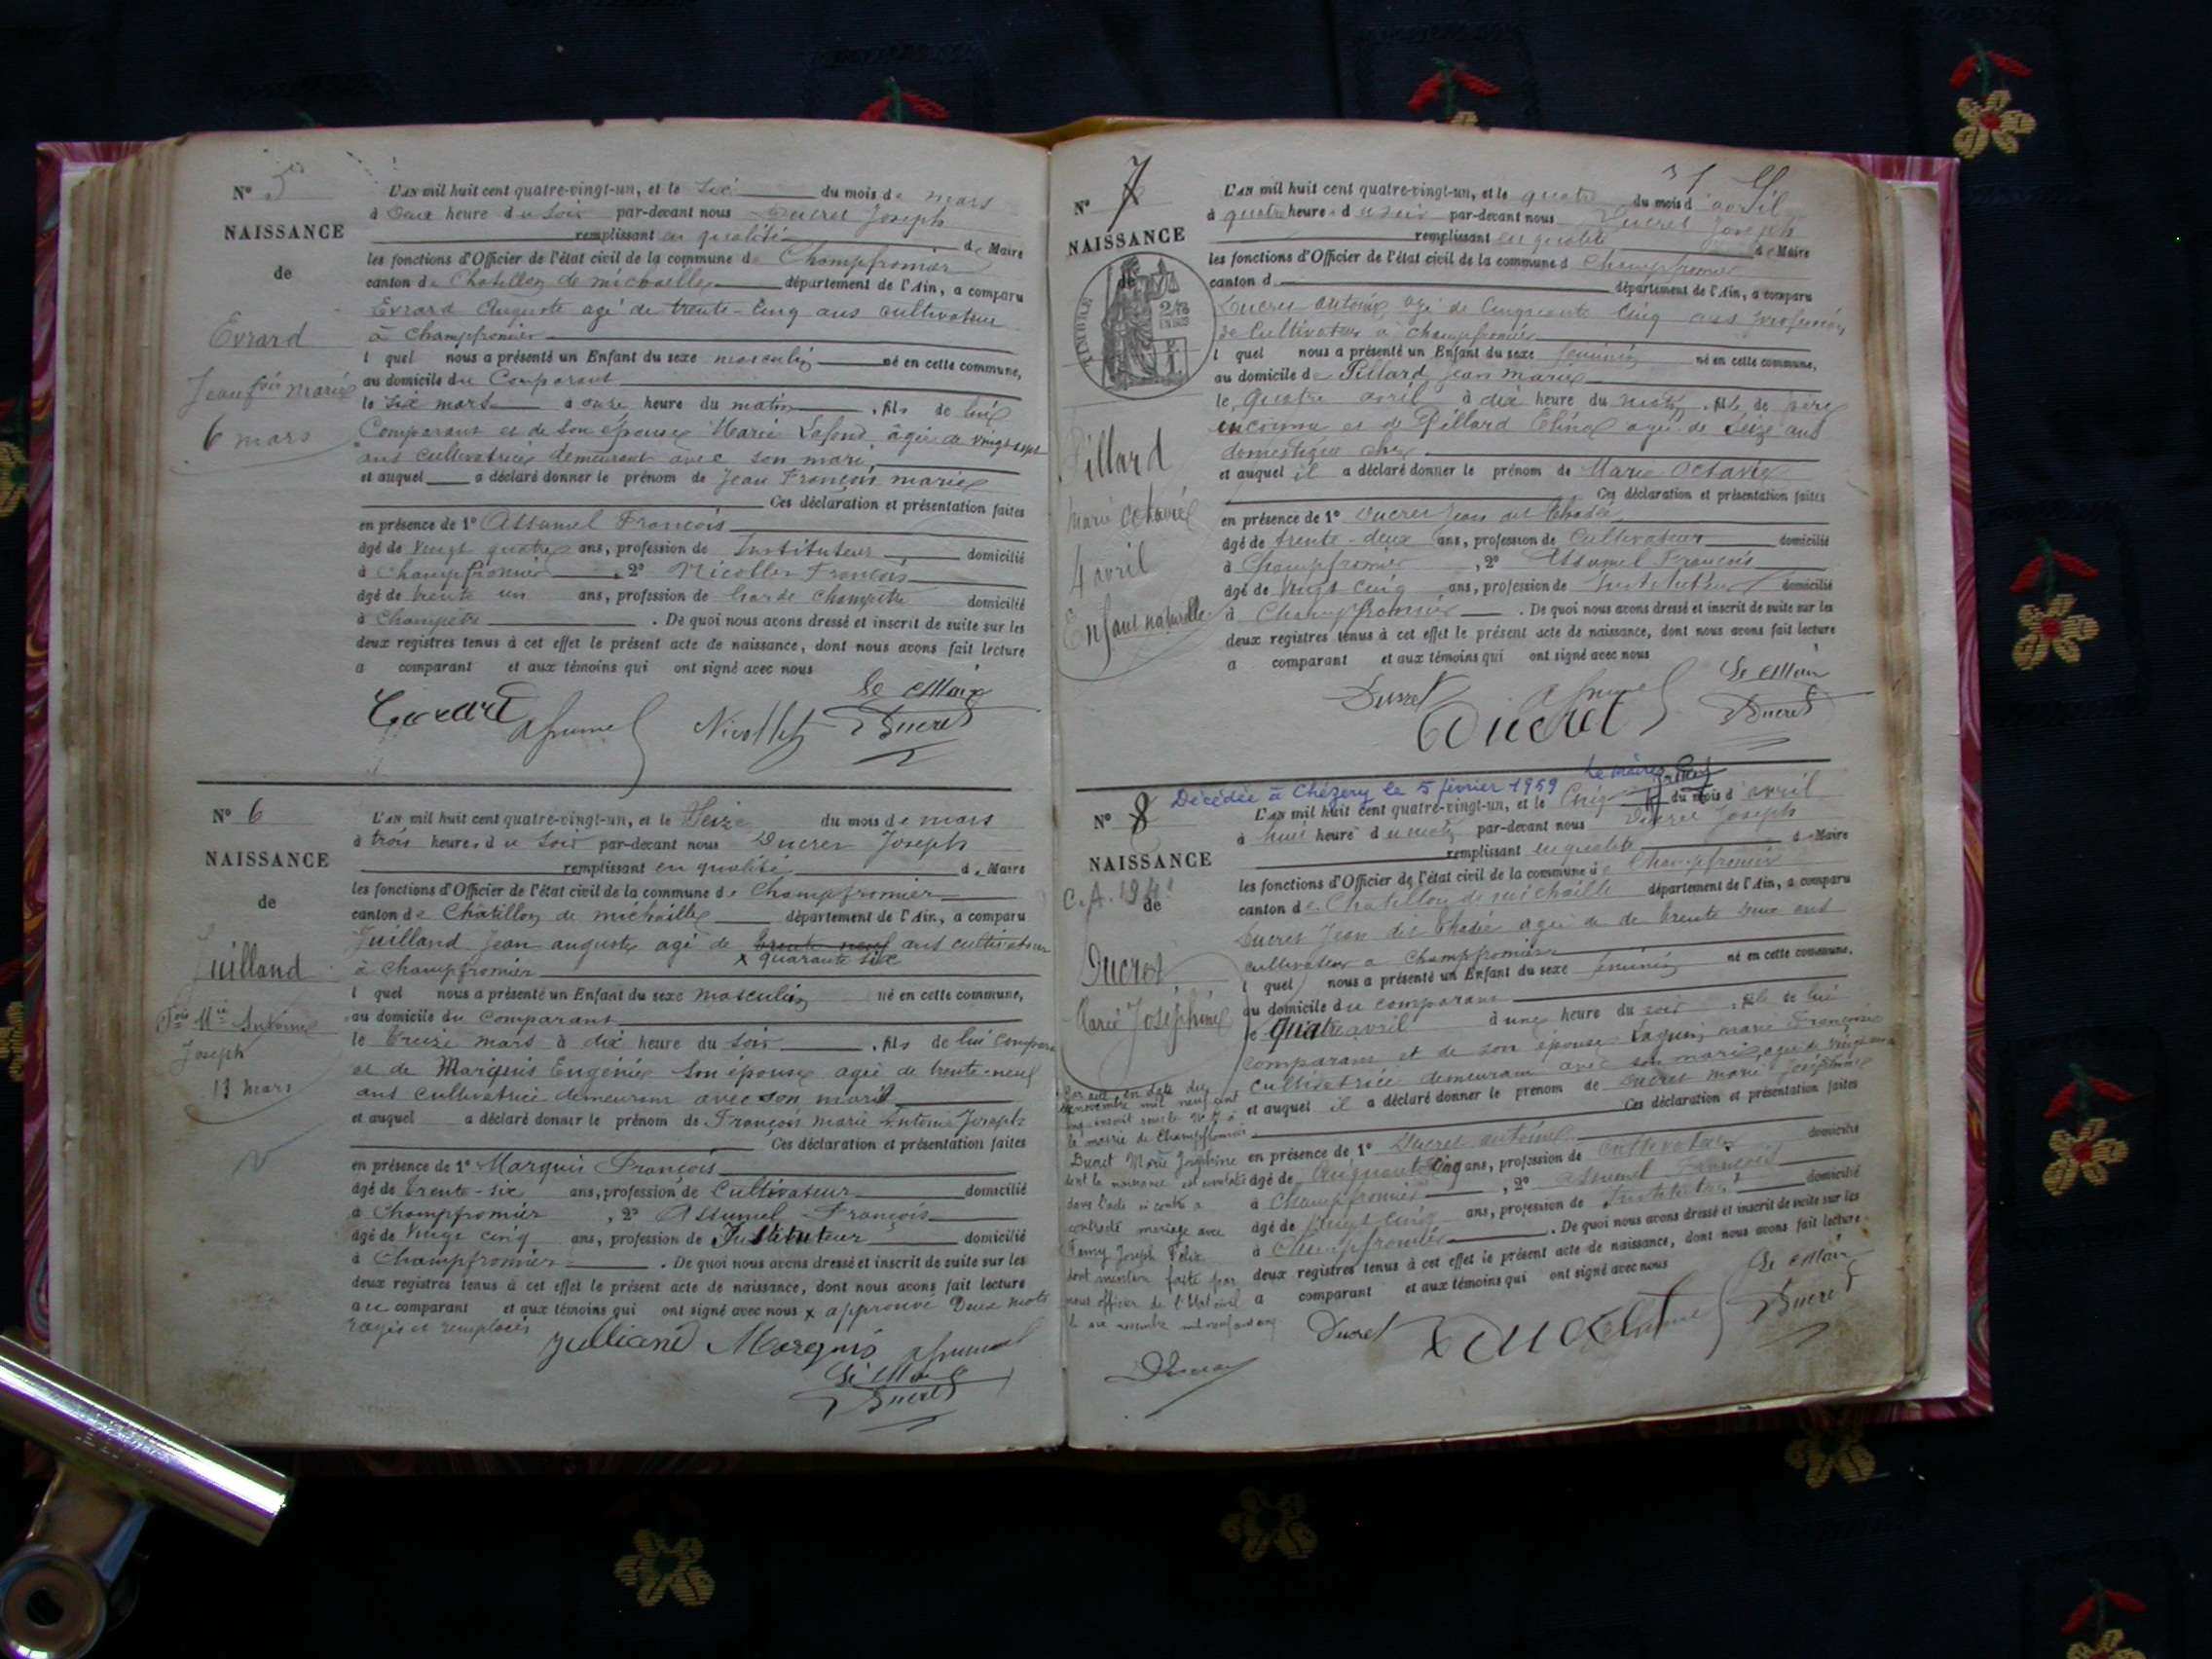 N° 5
NAISSANCE
de
Evrard
Jean fois Marie
6 mars
L'AN mil huit cent quatre-vingt-un, et le six du mois de mars
à deux heure du soir par-devant nous Ducret Joseph
remplissant en qualité de Maire
les fonctions d'Officier de l'état civil de la commune de Champfromier
canton de Chatillon de michaille département de l'Ain, a comparu
Evrard Auguste agé de trente-cinq ans cultivateur
à Champfromier
l quel nous a présenté un Enfant du sexe masculin né en cette commune,
au domicile du Comparant
le six mars à onze heure du matin, fils de lui
Comparant et de son épouse Marie Lafond âgée de vingt-sept
ans cultivatrice demeurant avec son mari,
et auquel a déclaré donner le prénom de Jean François marie
Ces déclaration et présentation faites
en présence de 1° Assumel François
âgé de vingt quatre ans, profession de Instituteur domicilié
à Champfromier, 2° Nicollet François
âgé de trente un ans, profession de Garde Champetre domicilié
à Champetre. De quoi nous avons dressé et inscrit de suite sur les
deux registres tenus à cet effet le présent acte de naissance, dont nous avons fait lecture
a comparant et aux témoins qui ont signé avec nous
Le Maire
Evrard Assumel Nicollet Ducret
N° 6
NAISSANCE
de
Juilland
fois Mie Antoine
Joseph
13 mars
L'AN mil huit cent quatre-vingt-un, et le seize du mois de mars
à trois heures du soir par-devant nous Ducret Joseph
remplissant en qualité de Maire
les fonctions d'Officier de l'état civil de la commune de Champfromier
canton de Châtillon de michaille département de l'Ain, a comparu
Juilland Jean auguste agé de trente neuf ans cultivateur
x quarante six
à Champfromier
l quel nous a présenté un Enfant du sexe masculin né en cette commune,
au domicile du Comparant
le treize mars à dix heure du soir, fils de lui compara
et de Marquis Eugénie son épouse agée de trente-neuf
ans cultivatrice demeurant avec son mari
et auquel a déclaré donner le prénom de François marie Antoine Joseph
Ces déclaration et présentation faites
en présence de 1° Marquis François
âgé de trente-six ans, profession de Cultivateur domicilié
à Champfromier, 2° Assumel François
âgé de vingt cinq ans, profession de Instituteur domicilié
à Champfromier. De quoi nous avons dressé et inscrit de suite sur les
deux registres tenus à cet effet le présent acte de naissance, dont nous avons fait lecture
au comparant et aux témoins qui ont signé avec nous x approuvé Deux mots
rayés et remplacés
Julliand Marquis Assumel
Le Maire
Ducret
N° 7
NAISSANCE
de
TIMBRE
Pillard
Marie Octavie
4 avril
Enfant naturelle
L'AN mil huit cent quatre-vingt-un, et le quatre du mois d'avril
à quatre heure du soir par-devant nous Ducret Joseph
remplissant en qualité de Maire
les fonctions d'Officier de l'état civil de la commune d Champfromier
canton d département de l'Ain, a comparu
Ducret Antoine agé de cinquante cinq ans profession
de Cultivateur à Champfromier
l quel nous a présenté un Enfant du sexe féminin né en cette commune,
au domicile de Pillard Jean marie
le Quatre avril à dix heure du matin, fille de père
inconnu et de Pillard agée de seize ans
domestique chez
et auquel il a déclaré donner le prénom de Marie Octavie
Ces déclaration et présentation faites
en présence de 1° Ducret Jean dit Thadée
âgé de trente-deux ans, profession de Cultivateur domicilié
à Champfromier, 2° Assumel François
âgé de vingt cinq ans, profession de Instituteur domicilié
à Champfromier. De quoi nous avons dressé et inscrit de suite sur les
deux registres tenus à cet effet le présent acte de naissance, dont nous avons fait lecture
a comparant et aux témoins qui ont signé avec nous
Le Maire
Ducret Assumel Ducret
Ducret
Décédée à Chézery le 5 février 1959 Le maire
N° 8
NAISSANCE
de
Ducret
Marie Joséphine
L'AN mil huit cent quatre-vingt-un, et le Cinq du mois d'avril
à huit heure du matin par-devant nous Ducret Joseph
remplissant en qualité d Maire
les fonctions d'Officier de l'état civil de la commune de Champfromier
canton de Chatillon de michaille département de l'Ain, a comparu
Ducret Jean dit Thadée agé de trente deux ans
cultivateur a Champfromier
l quel nous a présenté un Enfant du sexe féminin né en cette commune,
au domicile du comparant
le Quatre avril à une heure du soir, fille de lui
comparant et de son épouse marie Françoise
cultivatrice demeurant avec son marie, agée de vingt
et auquel il a déclaré donner le prénom de Ducret marie joséphine
Ces déclaration et présentation faites
en présence de 1° Ducret Antoine
âgé de cinquante cinq ans, profession de cultivateur domicilié
à Champfromier, 2° Assumel François
âgé de vingt cinq ans, profession de Instituteur domicilié
à Champfromier. De quoi nous avons dressé et inscrit de suite sur les
deux registres tenus à cet effet le présent acte de naissance, dont nous avons fait lecture
a comparant et aux témoins qui ont signé avec nous
Le Maire
Ducret Ducret Assumel Ducret
Par acte en date du
novembre mil neuf cent
inscrit sous le N° 7 à
la mairie de Champfromier
Ducret Marie Joséphine
dont la naissance est constatée
dans l'acte ci contre a
contracté mariage avec
Famy Joseph Félix
dont mention faite par
nous officier de l'Etat civil